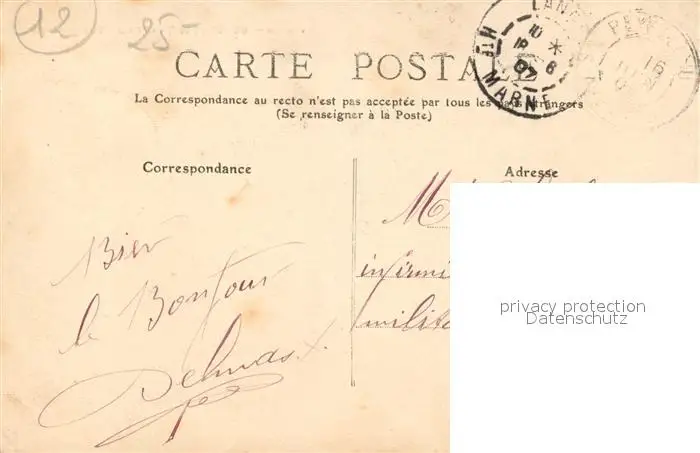 12
25-
CARTE POSTALE
La Correspondance au recto n'est pas acceptée par tous les pays étrangers
(Se renseigner à la Poste)
LAN
Hte
MARNE
10
18 8
07
16
Correspondance
Adresse
Bien
le Bonjour
Delmas
M
infirmi
milita
privacy protection
Datenschutz